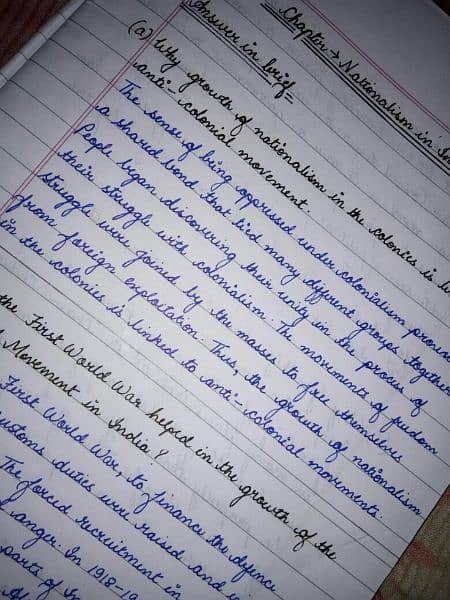 Chapter → Nationalism in In
Answer in brief =
(a) Why growth of nationalism in the colonies is li
anti-colonial movement.
The sense of being oppressed under colonialism provid
a shared bond that tied many different groups together
People began discovering their unity in the process of
their struggle with colonialism. The movements of fredom
struggle were joined by the masses to free themselves
from foreign exploitation. Thus, the growth of nationalism
in the colonies is linked to anti-colonial movements.
the First World War helped in the growth of the
Movement in India?
First World War, to finance the defence
customs duties were raised and
The forced recruitment in
anger. In 1918-19
parts of In